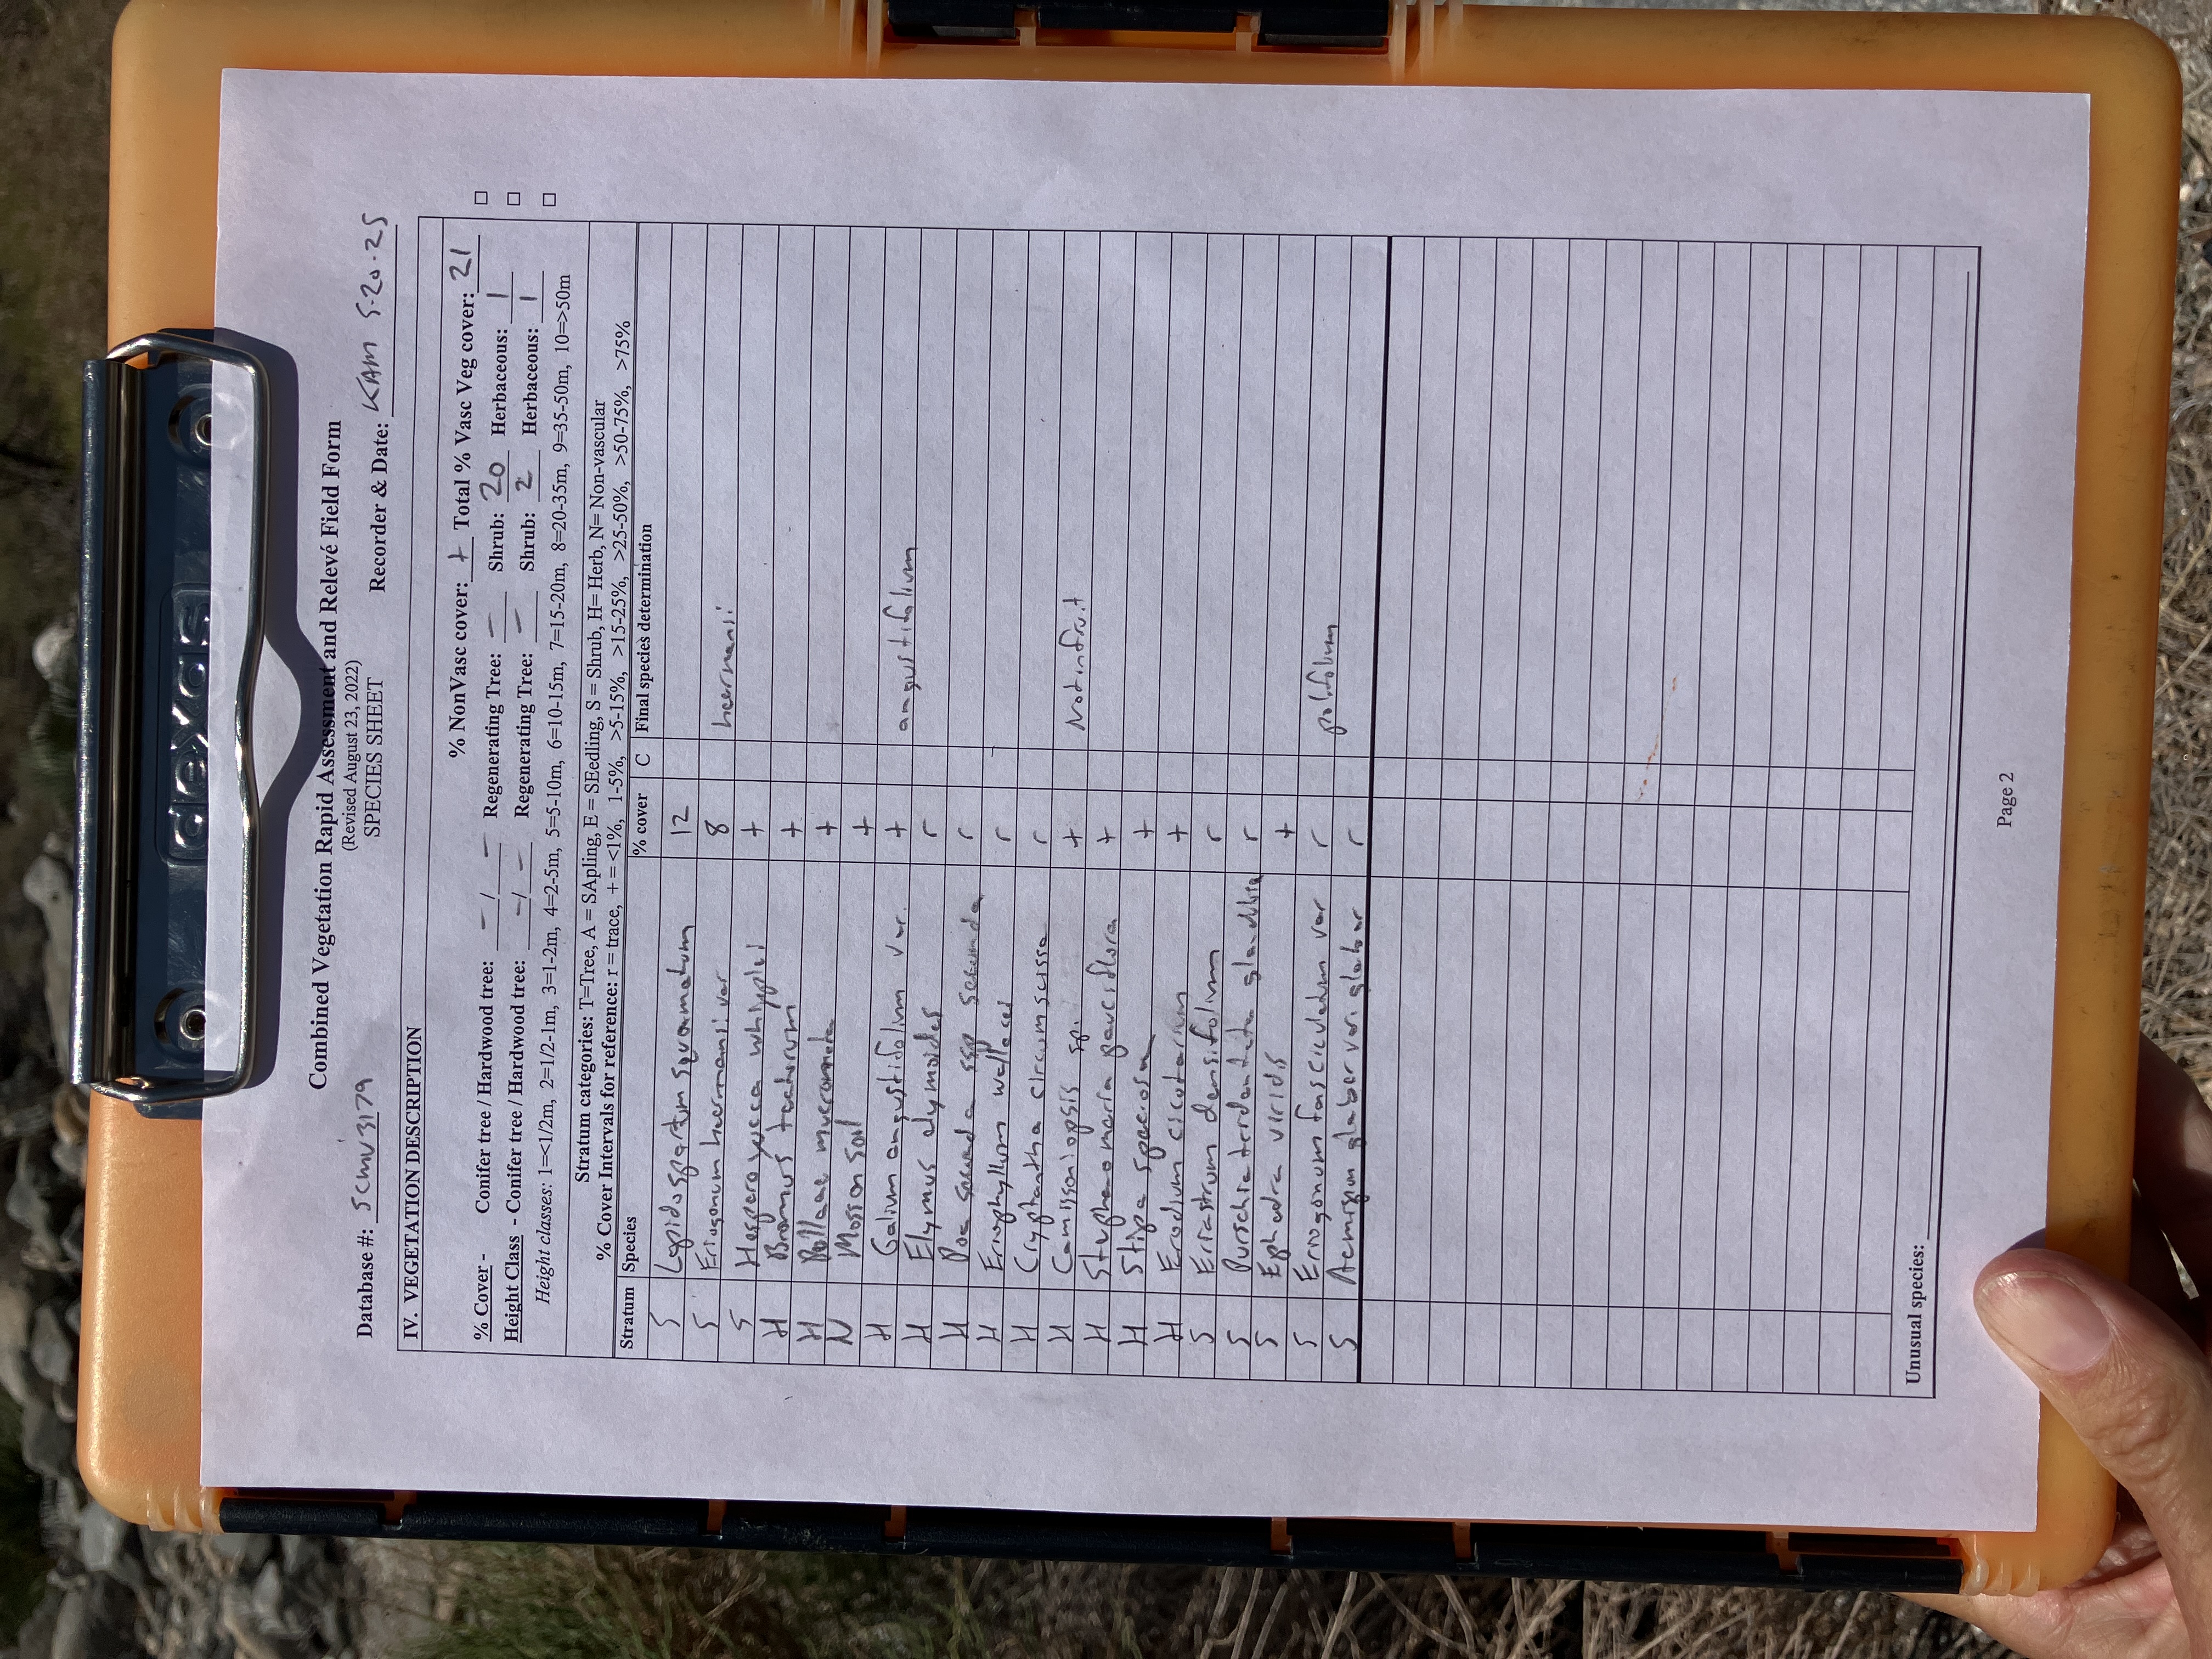 dexas
Combined Vegetation Rapid Assessment and Relevé Field Form
(Revised August 23, 2022)
SPECIES SHEET
Database #: SCMV3179 Recorder & Date: KAM 5.20.25
IV. VEGETATION DESCRIPTION
% NonVasc cover: + Total % Vasc Veg cover: 21
% Cover - Conifer tree / Hardwood tree: - / - Regenerating Tree: - Shrub: 20 Herbaceous: 1
Height Class - Conifer tree / Hardwood tree: - / - Regenerating Tree: - Shrub: 2 Herbaceous: 1
Height classes: 1=<1/2m, 2=1/2-1m, 3=1-2m, 4=2-5m, 5=5-10m, 6=10-15m, 7=15-20m, 8=20-35m, 9=35-50m, 10=>50m
Stratum categories: T=Tree, A = SApling, E = SEedling, S = Shrub, H= Herb, N= Non-vascular
% Cover Intervals for reference: r = trace, + = <1%, 1-5%, >5-15%, >15-25%, >25-50%, >50-75%, >75%
Stratum Species % cover C Final species determination
S Lepidospartum squamatum 12
S Eriogonum heermanii var 8 heermanii
S Hesperoyucca whipplei +
H Bromus tectorum +
H Pellaea mucronata +
N Moss on soil +
H Galium angustifolium var. + angustifolium
H Elymus elymoides r
H Poa secunda ssp secunda r
H Eriophyllum wallacei r
H Cryptantha circumscissa r
H Camissoniopsis sp. + Not in fruit
H Stephanomeria pauciflora +
H Stipa speciosa +
H Erodium cicutarium +
S Eriastrum densifolium r
S Purschia tridentata glandulosa r
S Ephedra viridis +
S Eriogonum fasciculatum var r polifolium
S Acmispon glaber var. glaber r
Unusual species:
Page 2